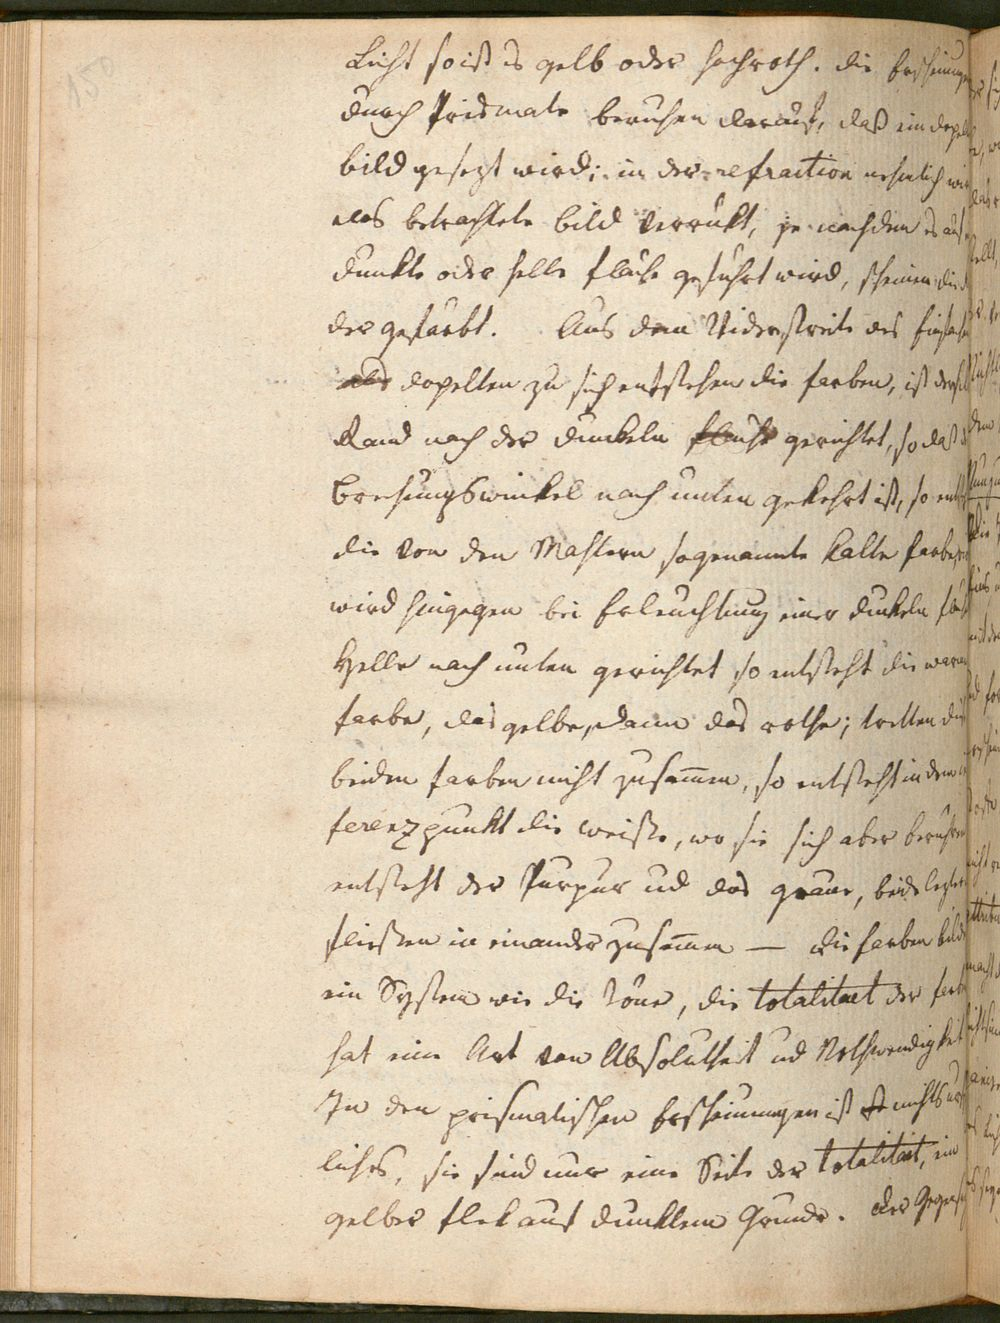 150
Licht so ist es gelb oder hochroth. die Erscheinungen
durch Prismate beruhen darauf, daß ein dopel
bild gesezt wird; in der refraction nehmlich wir
das betrachtete bild verrükt, je nachdem es auf
dunkle oder helle fläche geführt wird, scheinen die
der gefärbt. Aus dem Widerstreite des Einfachen
dopelten zu sich entstehen die farben, ist der
Rand nach der dunkeln fläche gerichtet, so daß d
brechungswinkel nach unten gekehrt ist, so ent
die von den Mahlern sogenannte kalte farbe,
wird hingegen bei Erleuchtung einer dunkeln fläche
Helle nach unten gerichtet, so entsteht die warme
farbe, das gelbe, dann das rothe; tretten die
beiden farben nicht zusam̅en, so entsteht in dem
ferenzpunkt die weiße, wo sie sich aber berühren
entsteht der Purpur ud das graue, beide leztere
fließen in einander zusam̅en — die farben bilden
ein System wie die Töne, die totalitaet der farben
hat eine Art von Absolutheit ud Nothwendigkeit
In den prismatischen Erscheinungen ist nichts ur
liches, sie sind nur eine Seite der totalitaet, ein
gelber flek auf dunklem Grunde. der Gegensaz